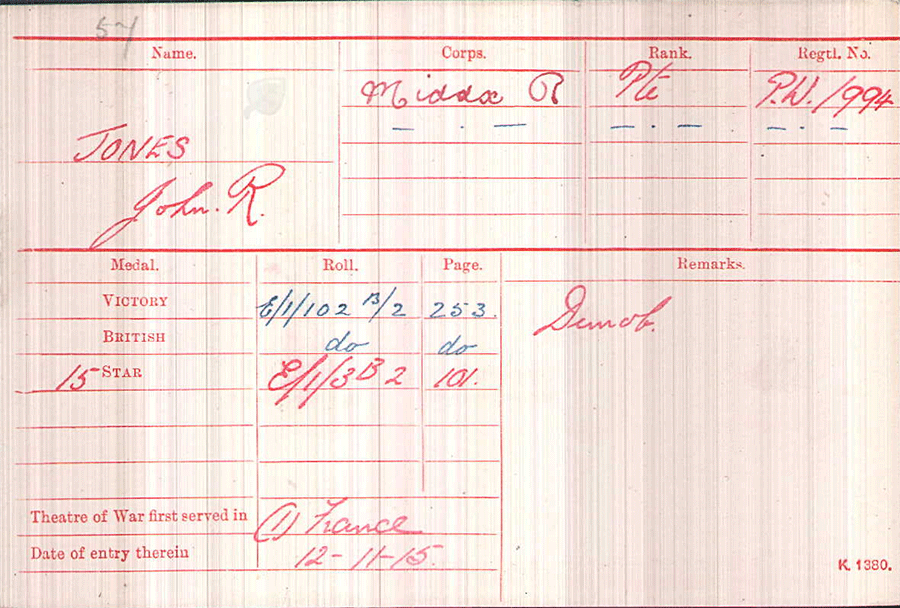 57
Name. Corps. Rank. Regtl. No.
Middx R Pte P.W./994
— . — — . — — . —
JONES
John. R.
Medal. Roll. Page. Remarks.
VICTORY E/1/102 B/2 253. Demob.
BRITISH do do
15 STAR E/1/3 B 2 101.
Theatre of War first served in (1) France
Date of entry therein 12-11-15.
K. 1380.